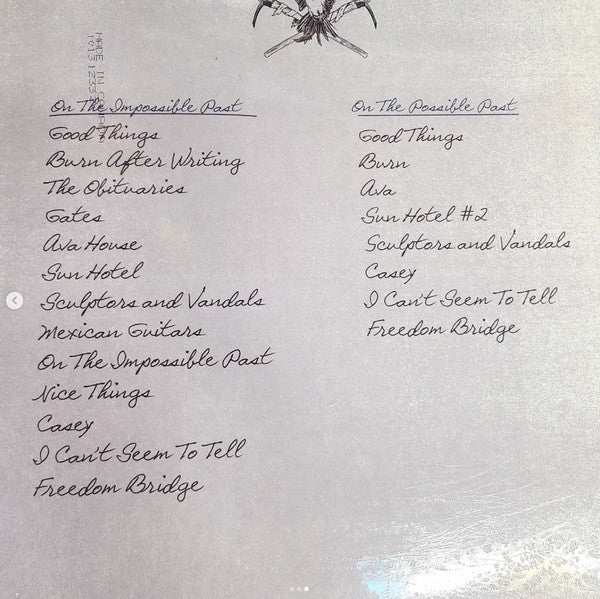 MADE IN CANADA
On The Impossible Past
Good Things
Burn After Writing
The Obituaries
Gates
Ava House
Sun Hotel
Sculptors and Vandals
Mexican Guitars
On The Impossible Past
Nice Things
Casey
I Can't Seem To Tell
Freedom Bridge
On The Possible Past
Good Things
Burn
Ava
Sun Hotel #2
Sculptors and Vandals
Casey
I Can't Seem To Tell
Freedom Bridge